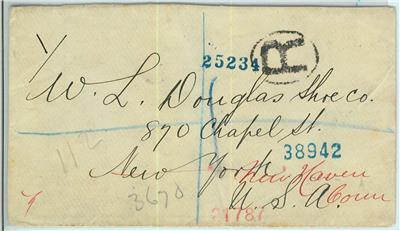 25234 R
W. L. Douglas Shoe Co.
870 Chapel St.
38942
New York
New Haven
U. S. A. Conn
3670
21787